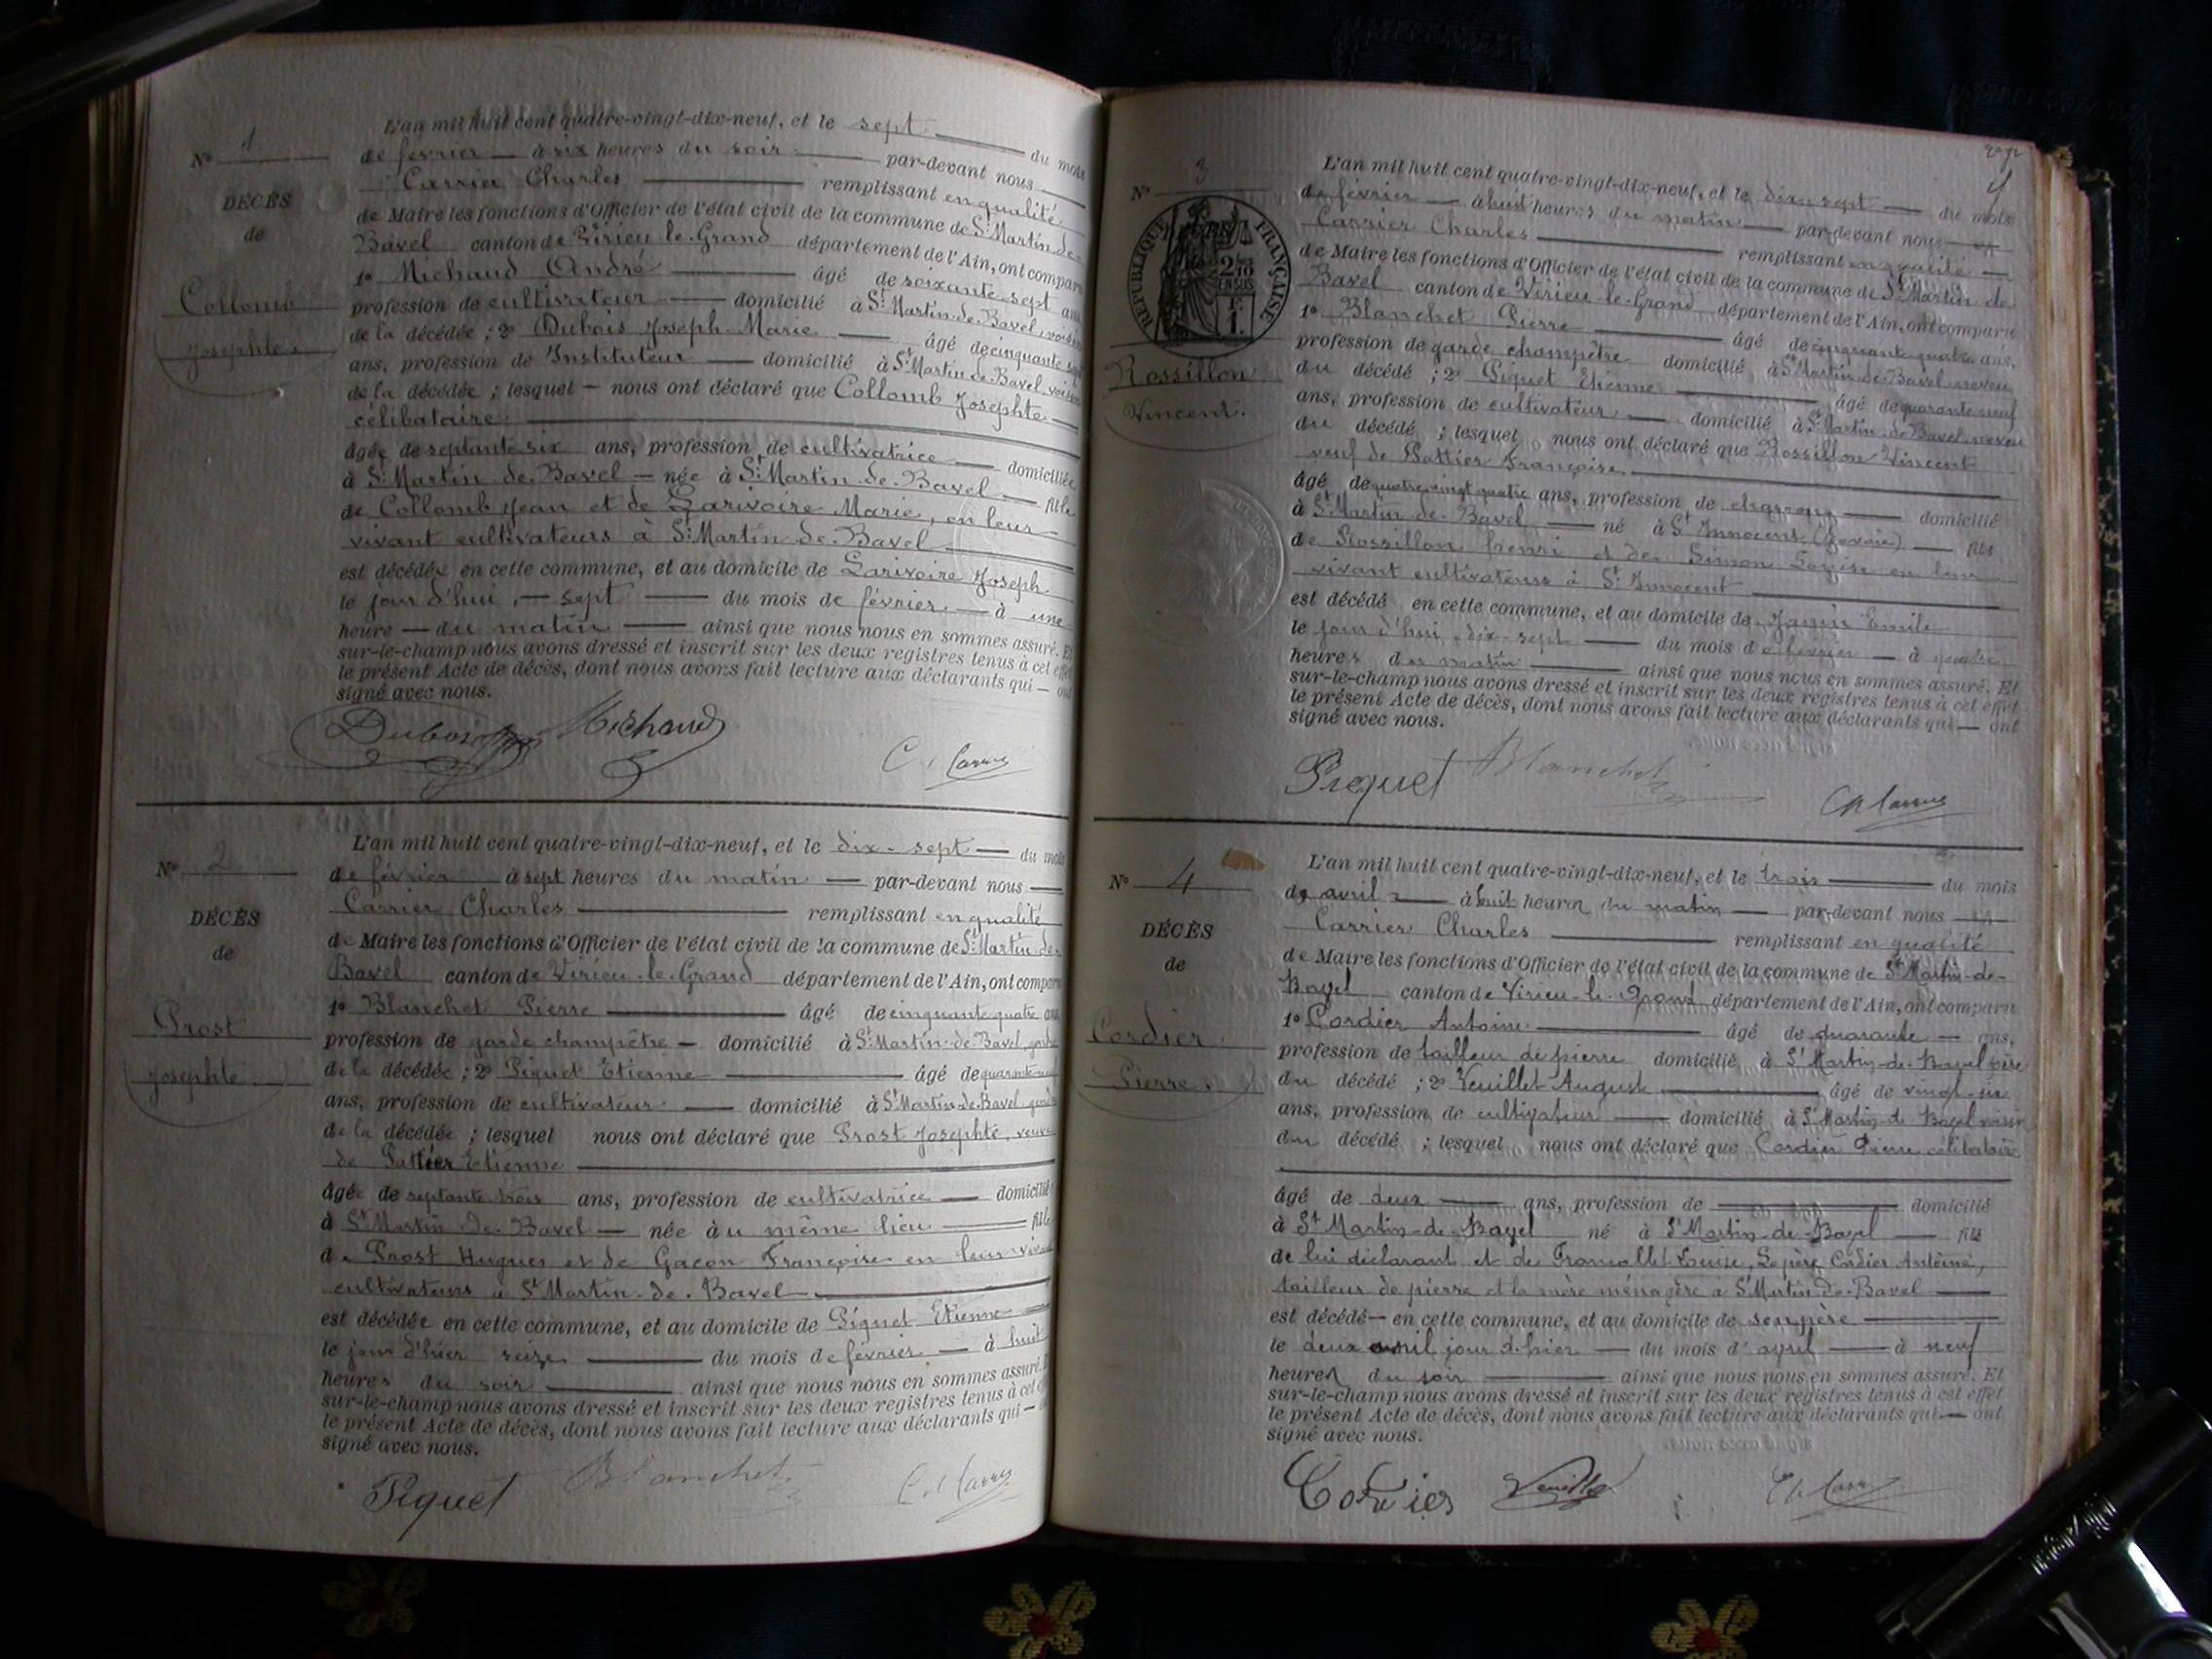 N° 1
DÉCÈS
de
Collomb
Josephte.
L'an mil huit cent quatre-vingt-dix-neuf, et le sept du mois
de février à six heures du soir par-devant nous
Carrier Charles remplissant en qualité
de Maire les fonctions d'Officier de l'état civil de la commune de St Martin de
Bavel canton de Virieu le Grand département de l'Ain, ont comparu
1° Michaud André âgé de soixante sept ans
profession de cultivateur domicilié à St Martin de Bavel voisin
de la décédée ; 2° Dubois Joseph Marie âgé de cinquante
ans, profession de Instituteur domicilié à St Martin de Bavel voisin
de la décédée ; lesquel nous ont déclaré que Collomb Josephte
célibataire
âgée de septante six ans, profession de cultivatrice domiciliée
à St Martin de Bavel née à St Martin de Bavel fille
de Collomb Jean et de Larivoire Marie, en leur
vivant cultivateurs à St Martin de Bavel
est décédée en cette commune, et au domicile de Larivoire Joseph
le jour d'hui, sept du mois de février à une
heure du matin ainsi que nous nous en sommes assuré. Et
sur-le-champ nous avons dressé et inscrit sur les deux registres tenus à cet effet
le présent Acte de décès, dont nous avons fait lecture aux déclarants qui ont
signé avec nous.
Dubois Michaud Ch Carrier
N° 2
DÉCÈS
de
Prost
Josephte
L'an mil huit cent quatre-vingt-dix-neuf, et le dix-sept du mois
de février à sept heures du matin par-devant nous
Carrier Charles remplissant en qualité
de Maire les fonctions d'Officier de l'état civil de la commune de St Martin de
Bavel canton de Virieu le Grand département de l'Ain, ont comparu
1° Blanchet Pierre âgé de cinquante quatre ans
profession de garde champêtre domicilié à St Martin de Bavel gendre
de la décédée ; 2° Piquet Etienne âgé de quarante neuf
ans, profession de cultivateur domicilié à St Martin de Bavel gendre
de la décédée ; lesquel nous ont déclaré que Prost Josephte, veuve
de Pattier Etienne
âgée de septante trois ans, profession de cultivatrice domicilié
à St Martin de Bavel née à u même lieu fille
de Prost Hugues et de Gacon Françoise en leur vivant
cultivateurs à St Martin de Bavel
est décédée en cette commune, et au domicile de Piquet Etienne
le jour d'hier seize du mois de février à huit
heures du soir ainsi que nous nous en sommes assuré. Et
sur-le-champ nous avons dressé et inscrit sur les deux registres tenus à cet effet
le présent Acte de décès, dont nous avons fait lecture aux déclarants qui
signé avec nous.
Piquet Blanchet Ch Carrier
N° 3
RÉPUBLIQUE FRANÇAISE
2/10 EN SUS
Rossillon
Vincent.
L'an mil huit cent quatre-vingt-dix-neuf, et le dix-sept du mois
de février à huit heures du matin par-devant nous
Carrier Charles remplissant en qualité
de Maire les fonctions d'Officier de l'état civil de la commune de St Martin de
Bavel canton de Virieu le Grand département de l'Ain, ont comparu
1° Blanchet Pierre âgé de cinquante quatre ans,
profession de garde champêtre domicilié à St Martin de Bavel neveu
du décédé ; 2° Piquet Etienne âgé de quarante neuf
ans, profession de cultivateur domicilié à St Martin de Bavel neveu
du décédé ; lesquel nous ont déclaré que Rossillon Vincent
veuf de Pattier Françoise
âgé de quatre vingt quatre ans, profession de domicilié
à St Martin de Bavel né à St Innocent (Savoie) fils
de Rossillon henri et de Simon en leur
vivant cultivateurs à St Innocent
est décédé en cette commune, et au domicile de Emile
le jour d'hui dix-sept du mois de février à quatre
heures du matin ainsi que nous nous en sommes assuré. Et
sur-le-champ nous avons dressé et inscrit sur les deux registres tenus à cet effet
le présent Acte de décès, dont nous avons fait lecture aux déclarants qui ont
signé avec nous.
Piquet Blanchet Ch Carrier
N° 4
DÉCÈS
de
Cordier
Pierre.
L'an mil huit cent quatre-vingt-dix-neuf, et le trois du mois
de avril à huit heures du matin par-devant nous
Carrier Charles remplissant en qualité
de Maire les fonctions d'Officier de l'état civil de la commune de St Martin-de-
Bavel canton de Virieu-le-Grand département de l'Ain, ont comparu
1° Cordier Antoine âgé de quarante ans,
profession de tailleur de pierre domicilié à St Martin-de-Bavel père
du décédé ; 2° Veuillet Auguste âgé de vingt-six
ans, profession de cultivateur domicilié à St Martin-de Bavel voisin
du décédé ; lesquel nous ont déclaré que Cordier Pierre célibataire
âgé de deux ans, profession de domicilié
à St Martin-de-Bavel né à St Martin-de-Bavel fils
de lui déclarant et de Louise, Le père Cordier Antoine,
tailleur de pierre et la mère ménagère à St Martin-de-Bavel
est décédé en cette commune, et au domicile de son père
le deux avril jour d'hier du mois d'avril à neuf
heures du soir ainsi que nous nous en sommes assuré. Et
sur-le-champ nous avons dressé et inscrit sur les deux registres tenus à cet effet
le présent Acte de décès, dont nous avons fait lecture aux déclarants qui ont
signé avec nous.
Cordier Veuillet Ch Carrier